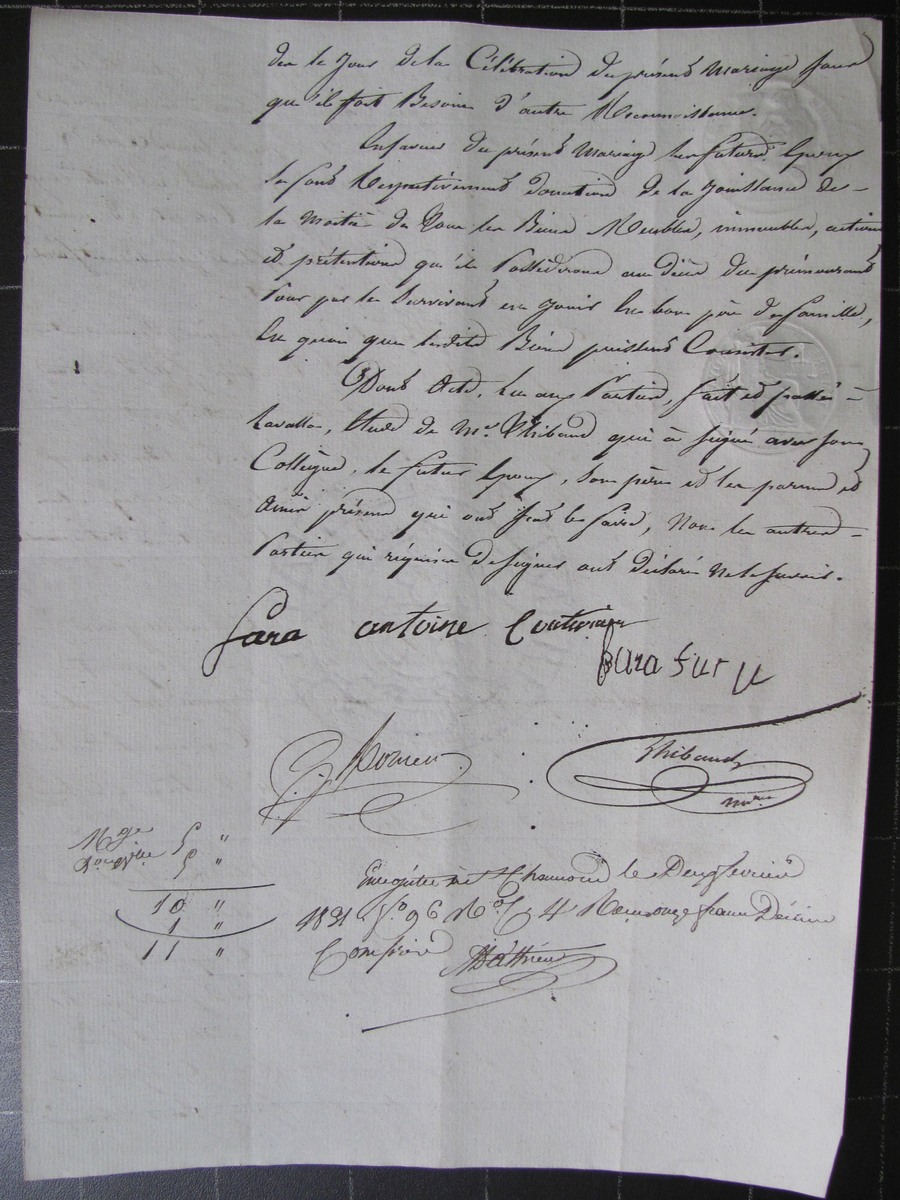 des le Jour de la Célébration du présent Mariage sans
qu'il soit Besoin d'autre Reconnaissance.
En faveur du présent Mariage les futurs Epoux
se font Respectivement donation de la Jouissance de
la Moitié de Tous les Biens Meubles, immeubles, actions
et prétentions qu'ils Possèderont au décès du prémourant
Pour par le Survivant en Jouir En bon père de famille,
En quoi que lesdits Biens puissent Consister.
Dont Acte, Lu aux Parties, fait et passé à
Lavalla, Etude de Me. Thibaud qui à signé avec son
Collègue, le futur Epoux, son père et les parens et
Amis présens qui ont sçu le faire, Non les autres
Parties qui réquises de signer ont Déclaré Ne le savoir.
fara antoine Couturier
fara fur u
Thibaud
nre
Mge 5 "
Donation 5 "
10 "
1 "
11 "
Enregistré à St Chamond le Deux février
1831 fo. 96 Ro. C 4 Reçu onze francs Décime
Compris Mathieu